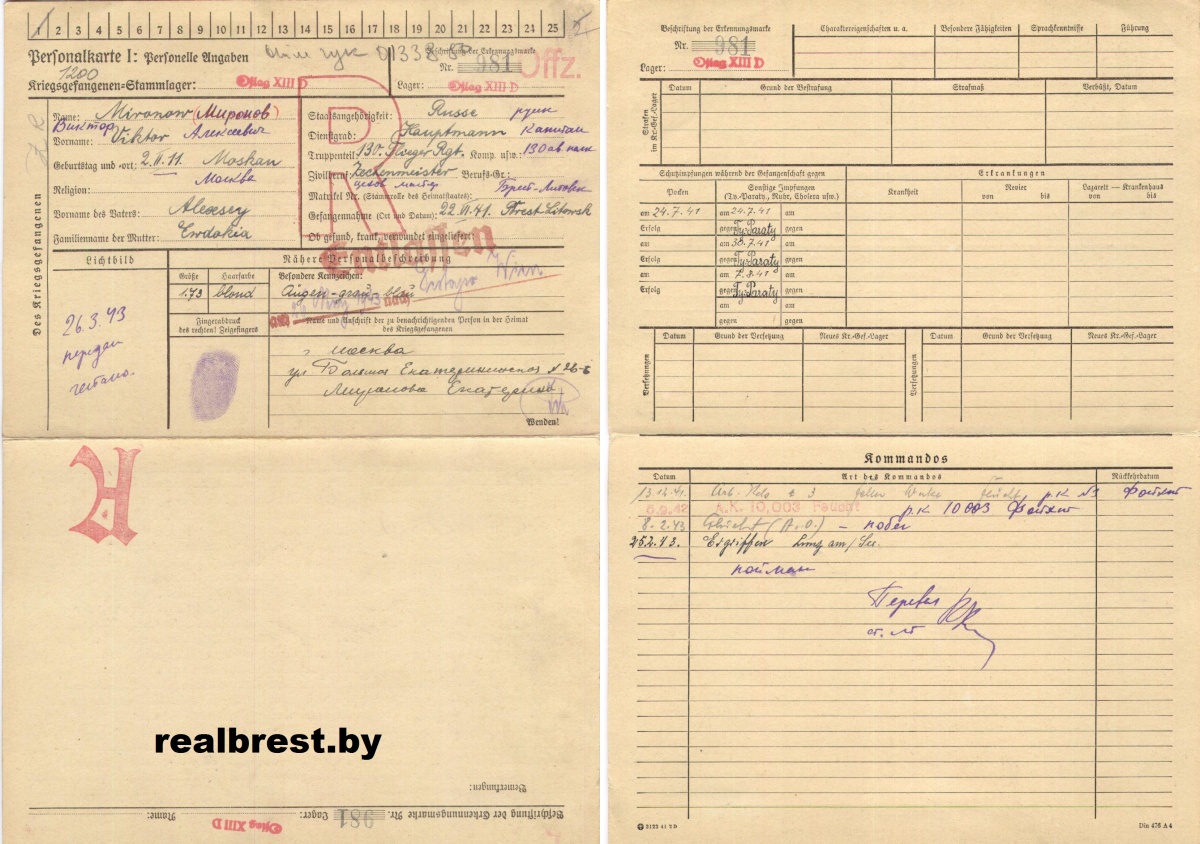 1 2 3 4 5 6 7 8 9 10 11 12 13 14 15 16 17 18 19 20 21 22 23 24 25
Personalkarte I: Personelle Angaben
Beschriftung der Erkennungsmarke
1200
Nr. 981 Offz.
Kriegsgefangenen-Stammlager: Oflag XIII D
Lager: Oflag XIII D
R
Des Kriegsgefangenen
Name: Mironow (Миронов)
Виктор Алексеевич
Vorname: Viktor
Geburtstag und -ort: 2.II.11 Moskau
Москва
Religion:
Vorname des Vaters: Alexsey
Familienname der Mutter: Ewdokia
Staatsangehörigkeit: Russe русск
Dienstgrad: Hauptmann Капитан
Truppenteil: 130. Flieger Rgt. Komp. usw.: 130 ав. полк
Zivilberuf: Zechenmeister Berufs-Gr.:
цехов мастер Брест-Литовск
Matrikel Nr. (Stammrolle des Heimatstaates)
Gefangennahme (Ort und Datum): 22.VI.41. Brest Litowsk
Ob gesund, krank, verwundet eingeliefert:
Entlassen
am 26. März 1943 nach Wien
Lichtbild
26.3.43
передан
гестапо.
Nähere Personalbeschreibung
Größe
Haarfarbe
Besondere Kennzeichen:
1.73 blond Augen-grau-blau
Fingerabdruck
des rechten! Zeigefingers
Name und Anschrift der zu benachrichtigenden Person in der Heimat
des Kriegsgefangenen
г Москва
ул Больша Екатерининская N 26-5
Миронова Екатерина
Wenden!
A
realbrest.by
Bemerkungen:
Beschriftung der Erkennungsmarke Nr. 981 Lager: Oflag XIII D Name:
Beschriftung der Erkennungsmarke
Nr. 981
Lager: Oflag XIII D
Charaktereigenschaften u. a.
Besondere Fähigkeiten
Sprachkenntnisse
Führung
Strafen
im Kr.-Gef.-Lager
Datum
Grund der Bestrafung
Strafmaß
Verbüßt, Datum
Schutzimpfungen während der Gefangenschaft gegen
Erkrankungen
Pocken
Sonstige Impfungen
(Ty.-Paraty., Ruhr, Cholera usw.)
Krankheit
Revier
von bis
Lazarett – Krankenhaus
von bis
am 24.7.41 am 24.7.41 am
Erfolg gegen Ty-Paraty gegen
am am 30.7.41 am
Erfolg gegen Ty-Paraty gegen
am am 7.8.41 am
Erfolg gegen Ty-Paraty gegen
am am
gegen gegen
Versetzungen
Datum
Grund der Versetzung
Neues Kr.-Gef.-Lager
Versetzungen
Datum
Grund der Versetzung
Neues Kr.-Gef.-Lager
Kommandos
Datum
Art des Kommandos
Rückkehrdatum
13.12.41. р.к N3 Файхт
6.9.42 A.K. 10,003 Feucht р.к 10003 Файхт
8.2.43 Flucht (A.O.) – побег
25.2.43. Ergriffen Lung am/See.
пойман
Перевел
ст. лт
3122 41 2 D
Din 476 A 4